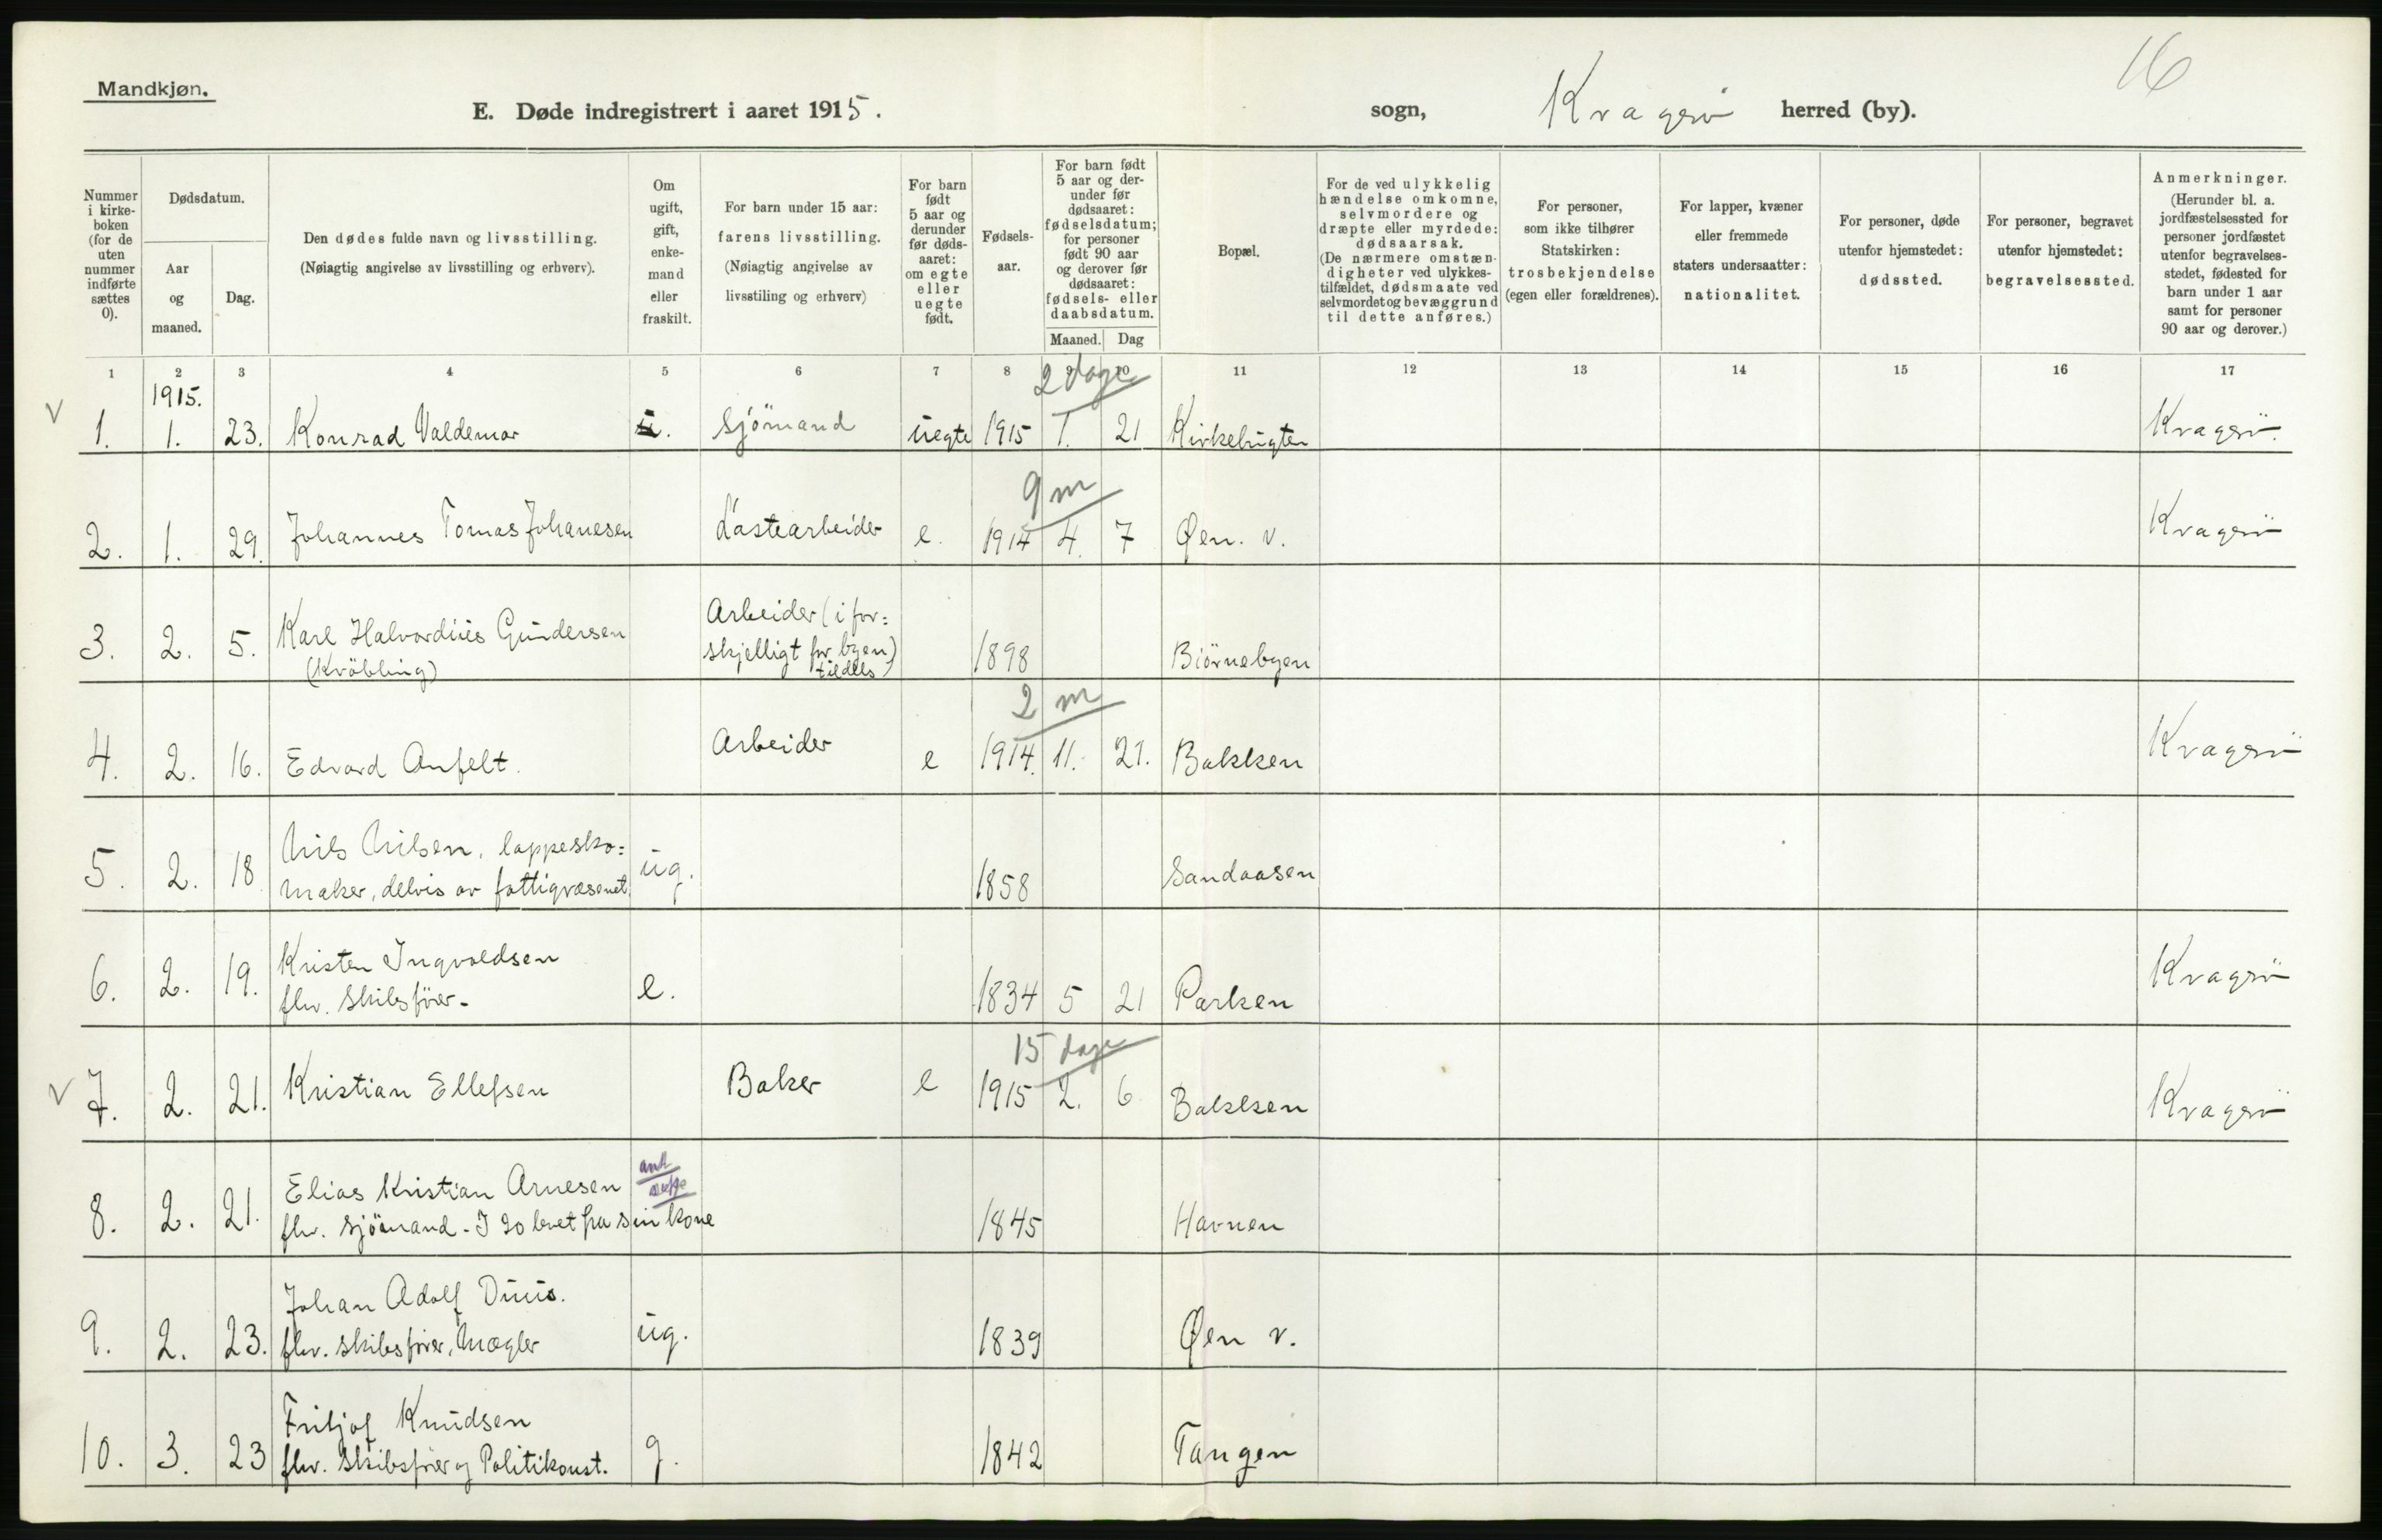 16
Mandkjøn.
E. Døde indregistrert i aaret 1915. sogn, Kragerö herred (by).
Nummer i kirke- boken (for de uten nummer indførte sættes 0).
Dødsdatum.
Aar og maaned.
Dag.
Den dødes fulde navn og livsstilling.
(Nøiagtig angivelse av livsstilling og erhverv).
Om ugift, gift, enke- mand eller fraskilt.
For barn under 15 aar: farens livsstilling.
(Nøiagtig angivelse av livsstiling og erhverv)
For barn født 5 aar og derunder før døds- aaret: om egte eller uegte født.
Fødsels- aar.
For barn født 5 aar og der- under før dødsaaret: fødselsdatum; for personer født 90 aar og derover før dødsaaret: fødsels- eller daabsdatum.
Maaned. Dag
Bopæl.
For de ved ulykkelig hændelse omkomne, selvmordere og dræpte eller myrdede: dødsaarsak.
(De nærmere omstæn- digheter ved ulykkes- tilfældet, dødsmaate ved selvmordet og bevæggrund til dette anføres.)
For personer, som ikke tilhører Statskirken: trosbekjendelse (egen eller forældrenes).
For lapper, kvæner eller fremmede staters undersaatter: nationalitet.
For personer, døde utenfor hjemstedet: dødssted.
For personer, begravet utenfor hjemstedet: begravelsessted.
Anmerkninger.
(Herunder bl. a. jordfæstelsessted for personer jordfæstet utenfor begravelses- stedet, fødested for barn under 1 aar samt for personer 90 aar og derover.)
1 2 3 4 5 6 7 8 9 10 11 12 13 14 15 16 17
1915. 2 dage
v 1. 1. 23. Konrad Valdemar u. Sjömand uegte 1915 1. 21 Kirkebugten Kragerö.
9 m
2. 1. 29. Johannes Tomas Johanesen Lastearbeider e. 1914 4. 7 Øen. v. Kragerö
Arbeider (i for=
3. 2. 5. Karl Halvordius Gundersen skjelligt for byen) 1898 Biörnebyen
(Kröbling) tildels
2 m
4. 2. 16. Edvard Anfelt. Arbeider e 1914. 11. 21. Bakken Kragerö
Nils Nilsen, lappesko=
5. 2. 18 maker, delvis av fattigvæsenet ug. 1858 Sandaasen
Kristen Ingvaldsen
6. 2. 19. flv. Skibsförer- e. 1834 5 21 Parken Kragerö
15 dage
v 7. 2. 21. Kristian Ellefsen Baker e 1915 2. 6 Bakken Kragerö
Elias Kristian Arnesen
8. 2. 21. flv. Sjömand - I 20 levet fra sin kone 1845 Havnen
Johan Adolf Duus.
9. 2. 23. flv. Skibsförer, Mægler ug. 1839 Øen v.
Fritjof Knudsen
10. 3. 23 flv. Skibsförer og Politikonst. g. 1842 Tangen